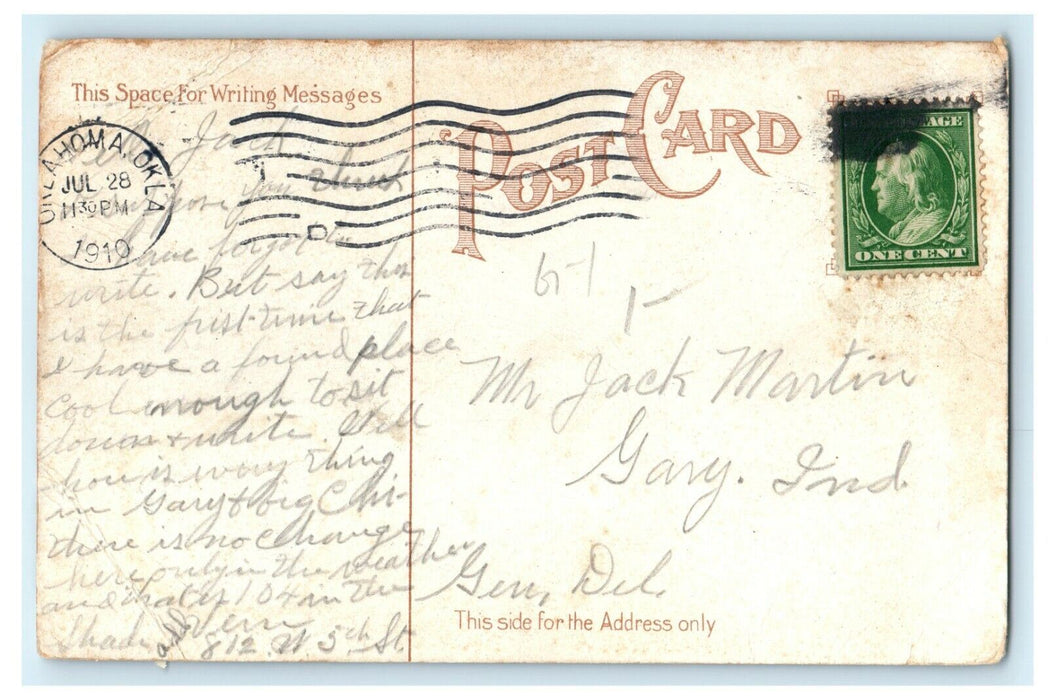 This Space For Writing Messages
POST CARD
OKLAHOMA, OKLA
JUL 28
11 30 PM
1910
D
ONE CENT
Jack
I suppose you think
I have forgot to
write. But say this
is the first time that
I have a found place
cool enough to sit
down & write. Well
how is every thing
in Gary & big Chi-
there is no change
here only in the weather
and that is 104 in the
shade
add 812. W 5th St
6-1
Mr Jack Martin
Gary. Ind.
Gen, Del.
This side for the Address only